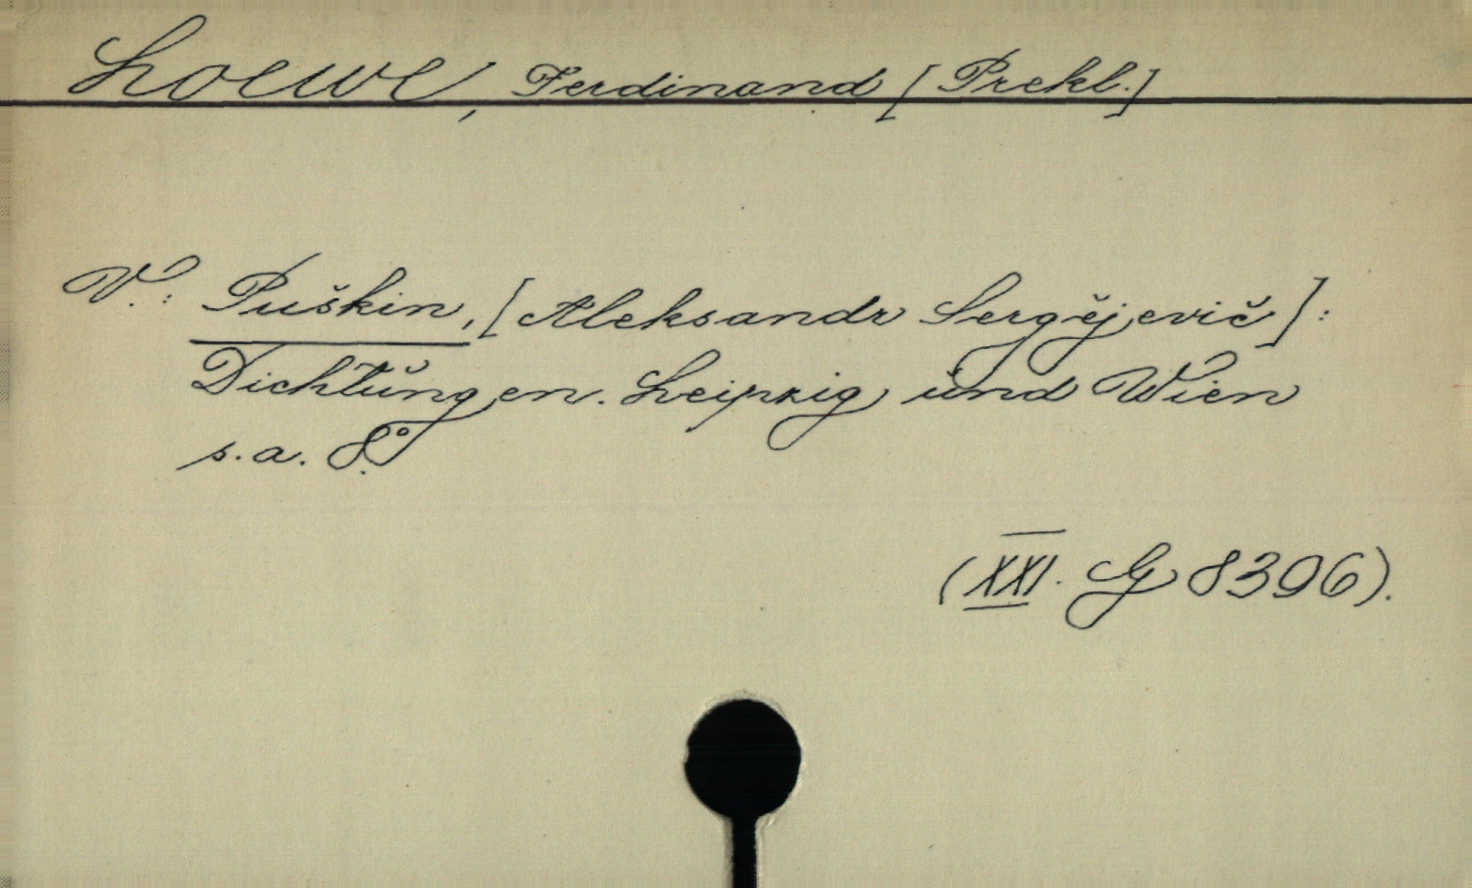 Loewe, Ferdinand [Prekl.]
V.: Puškin, [Aleksandr Sergějevič]:
Dichtungen. Leipzig und Wien
s.a. 8.°
(XXI. G 8396).